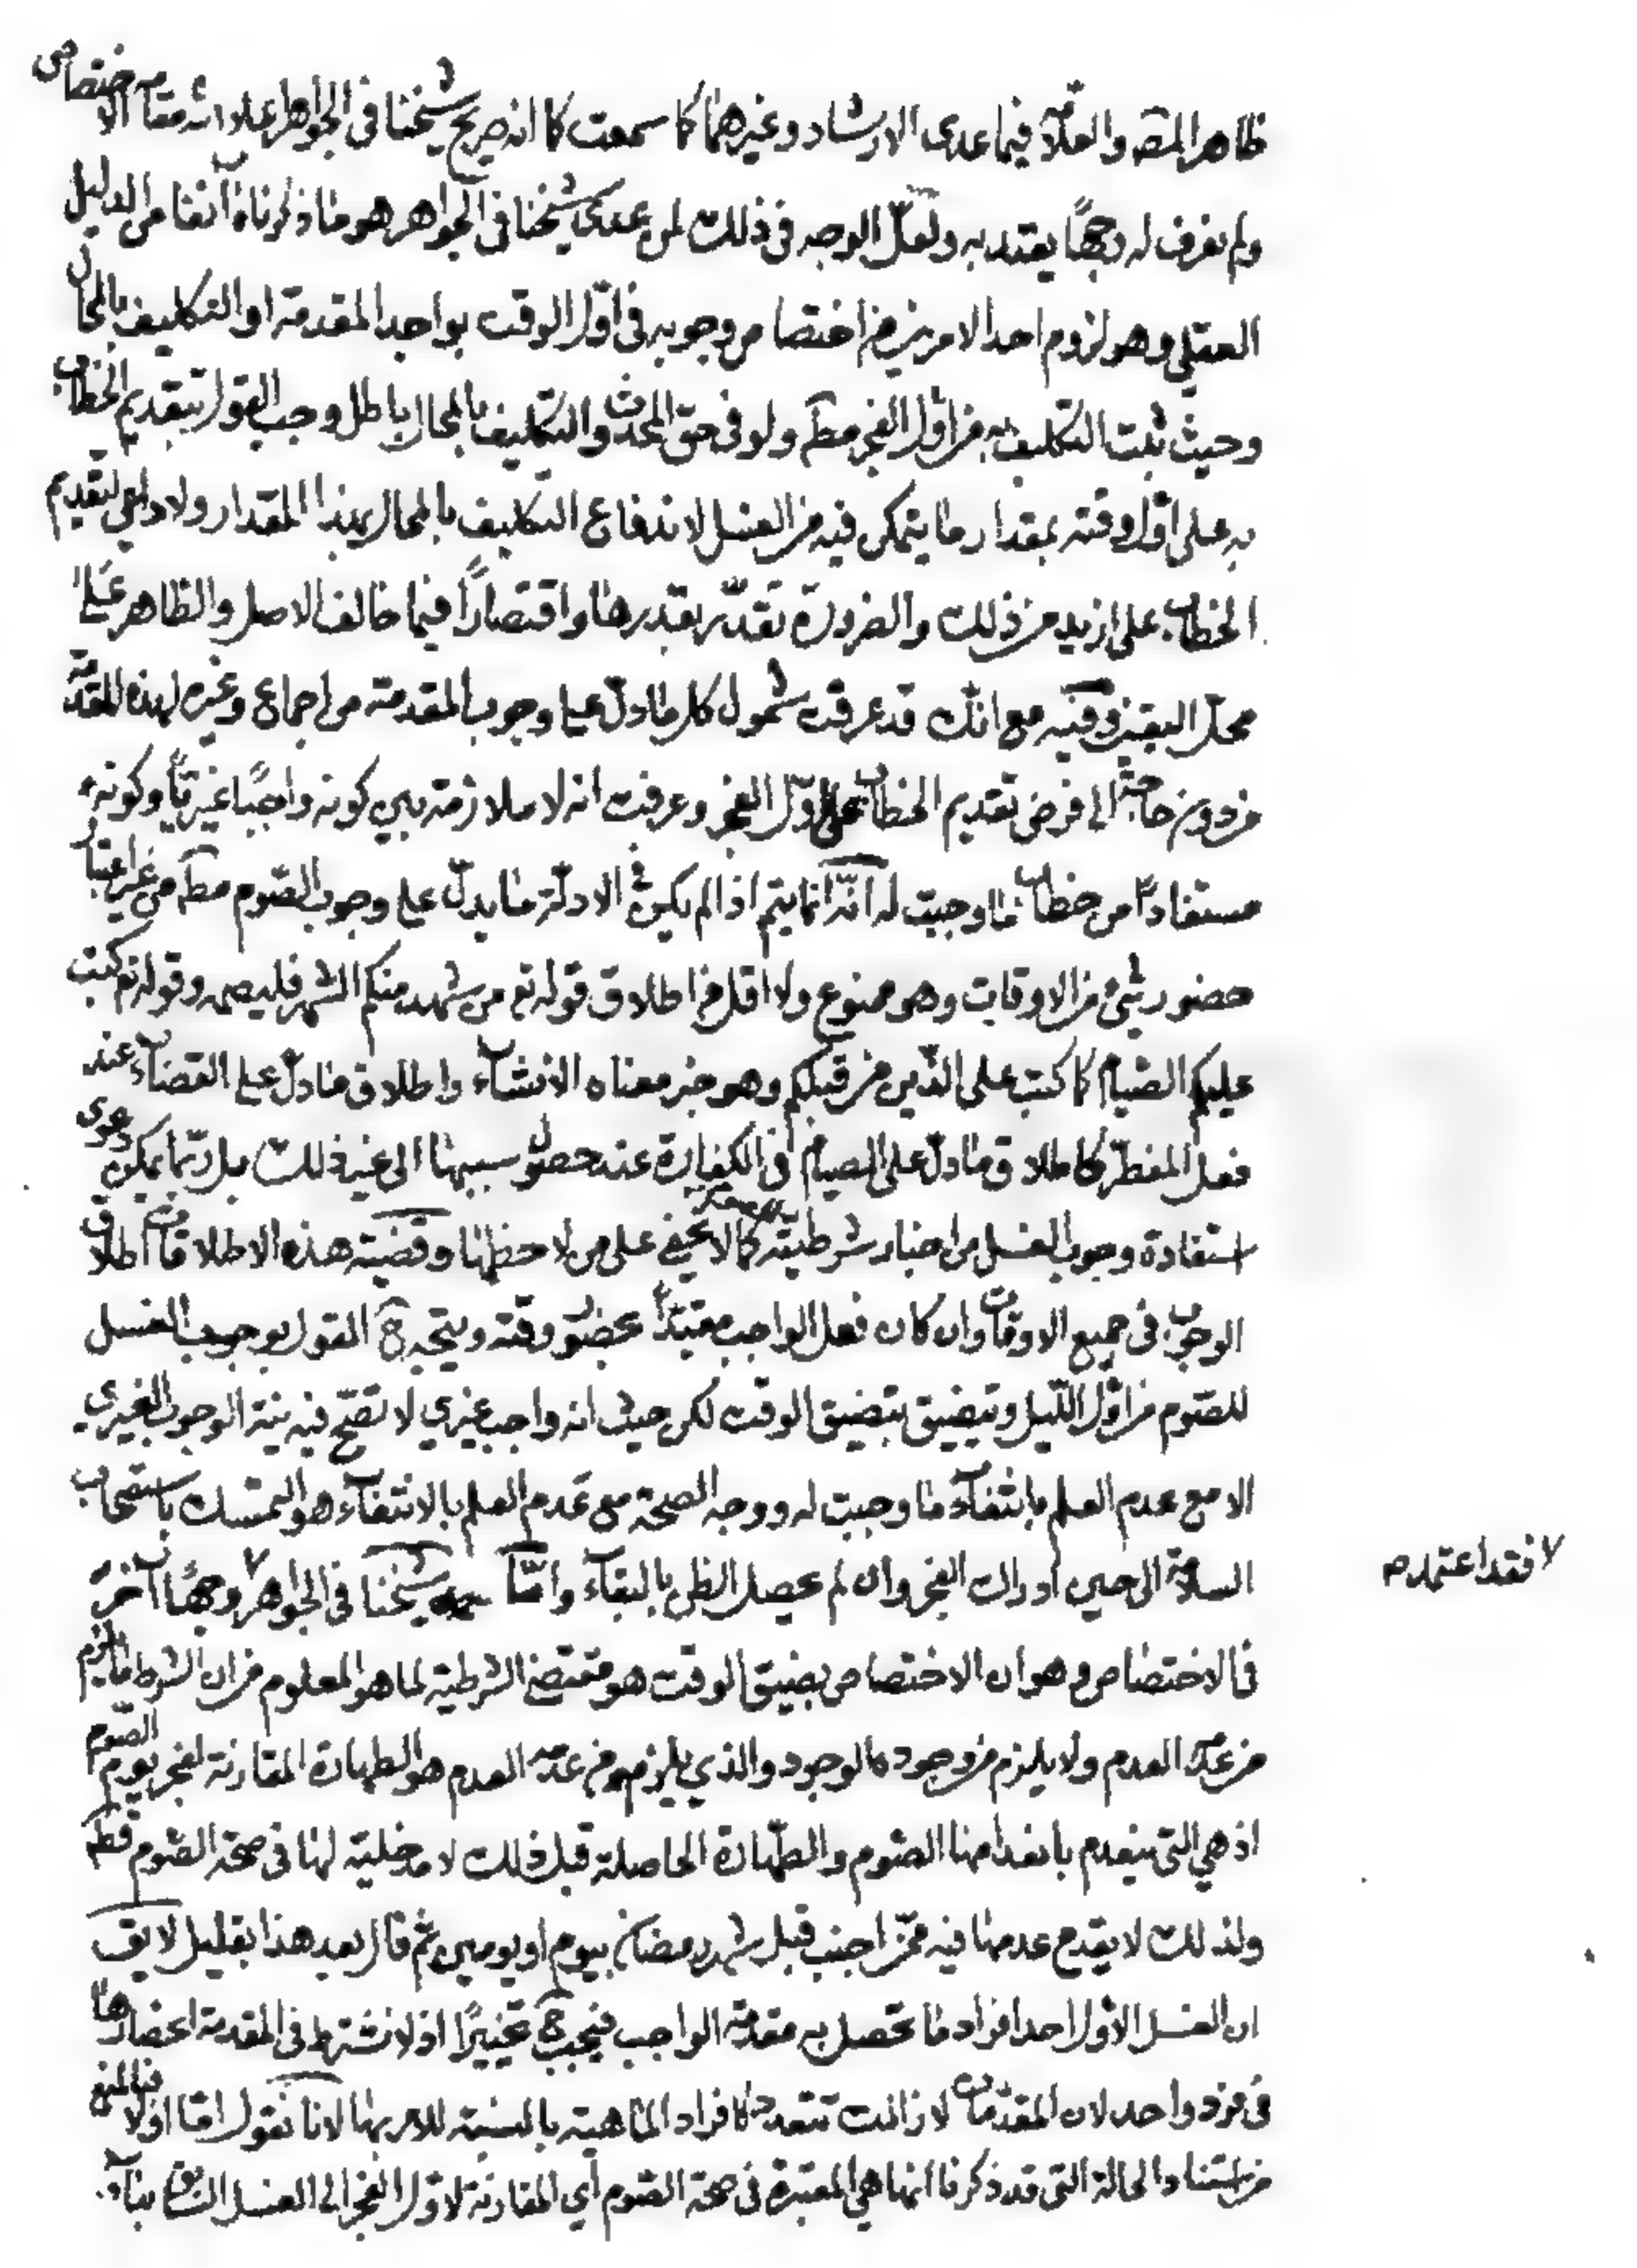 ظاهر المصه والعلّامة فيما عدى الارشاد وغيرهما كما سمعت كما انه صريح شيخنا فى الجواهر علا الله مقامه الاختصاص
ولم نعرف له وجهًا يعتد به ولعلّ الوجه فى ذلك لمن عدى شيخنا فى الجواهر هو ما ذكرناه آنفا من الدليل
العقلي وهو لزوم احد الامرين من اختصاص وجوبه فى اوّل الوقت بواجد المقدمة او التكليف بالمحال
وحيث ثبت التكليف به من اوّل الفجر مطلقا ولو فى حق المحدث والتكليف بالمحال باطل وجب القول بتقديم الخطاب
به على اوّل وقته بمقدار ما يتمكن فيه من الغسل لاندفاع التكليف بالمحال بهذا المقدار ولا داعى لتقديم
الخطاب على ازيد من ذلك والضرورة تقدّر بقدرها واقتصارًا فيما خالف الاصل والظاهر على
محل اليقين وفيه مع انك قد عرفت شمول كل ما دلّ على وجوب المقدمة من اجماع وغيره لهذه المقدّمة
من دون حاجة الى فرض تقديم الخطاب على اوّل الفجر وعرفت انه لا ملازمة بين كونه واجبًا غيريًّا وكونه
مستفادًا من خطاب ما وجبت له انّه انما يتم اذا لم يكن فى الادلّة ما يدلّ على وجوب الصّوم مطلقا من غير اعتبار
حضور شئ من الاوقات وهو ممنوع ولا اقل من اطلاق قوله تع من شهد منكم الشهر فليصمه وقوله تع كتب
عليكم الصّيام كما كتب على الذّين من قبلكم وهو خبر معناه الانشآء واطلاق ما دلّ على القضآء عند
فعل المفطر كاطلاق ما دلّ على الصيام فى الكفارة عند حصول سببها الى غير ذلك بل ربّما يمكن دعوى
استفادة وجوب الغسل من اخبار شرطيته كما لا يخفى على من لاحظها وقضية هذه الاطلاقات اطلاق
الوجوب فى جميع الاوقات وان كان فعل الواجب مقيّدًا بحضور وقته ويتجه ح القول بوجوب الغسل
للصّوم من اوّل اللّيل وتضيق بتضيق الوقت لكن حيث انه واجب غيري لا تصحّ فيه نيّة الوجوب الغيري
الا مع عدم العلم بانتفآء ما وجبت له ووجه الصحة مع عدم العلم بالانتفآء هو التمسك باستصحاب
السلامة الى حين ادراك الفجر وان لم يحصل الظن بالبقآء وامّا شيخنا فى الجواهر وجهًا آخر
لا فقد اعتمد ره
فى الاختصاص وهو ان الاختصاص بضيق الوقت هو مقتضى الشرطية لما هو المعلوم من ان الشرط ما يلزم
من عدمه العدم ولا يلزم من وجوده الوجود والذي يلزم من عدمه العدم هو الطهارة المقارنة لفجر يوم الصّوم
اذ هي التى ينعدم بانعدامها الصّوم والطّهارة الحاصلة قبل ذلك لا مدخلية لها فى صحة الصّوم قطعا
ولذلك لا يقدح عدمها فيه ممّن اجنب قبل شهر رمضان بيوم او يومين ثم قال بعد هذا بقليل لا يق
ان الغسل الاوّل احد افراد ما تحصل به مقدمة الواجب فيجب ح تخييرًا اذ لا نشترط فى المقدمة انحصارها
فى فرد واحد لان المقدّمات لا زالت تتعدد كافراد الماهية بالنسبة للامر بها لانا نقول امّا اوّلا فبالمنع
من استناد الحالة التى قد ذكرنا انها هي المعتبرة فى صحة الصّوم اي المقارنة لاوّل الفجر الى الغسل السّابق بناءً